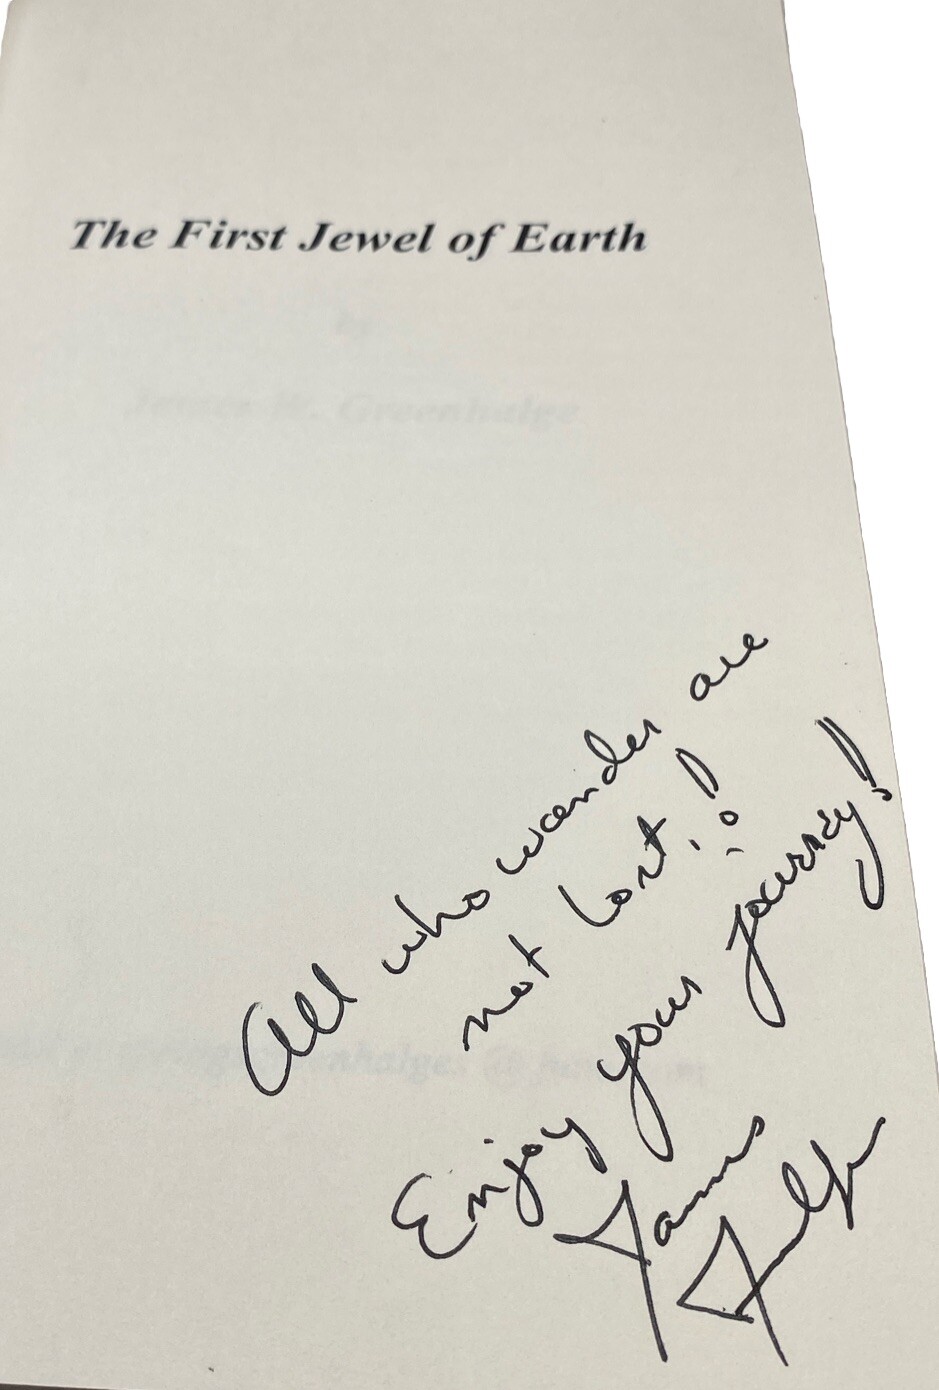 The First Jewel of Earth
by
James W. Greenhalge
All who wander are
not lost!
Enjoy your journey!
James